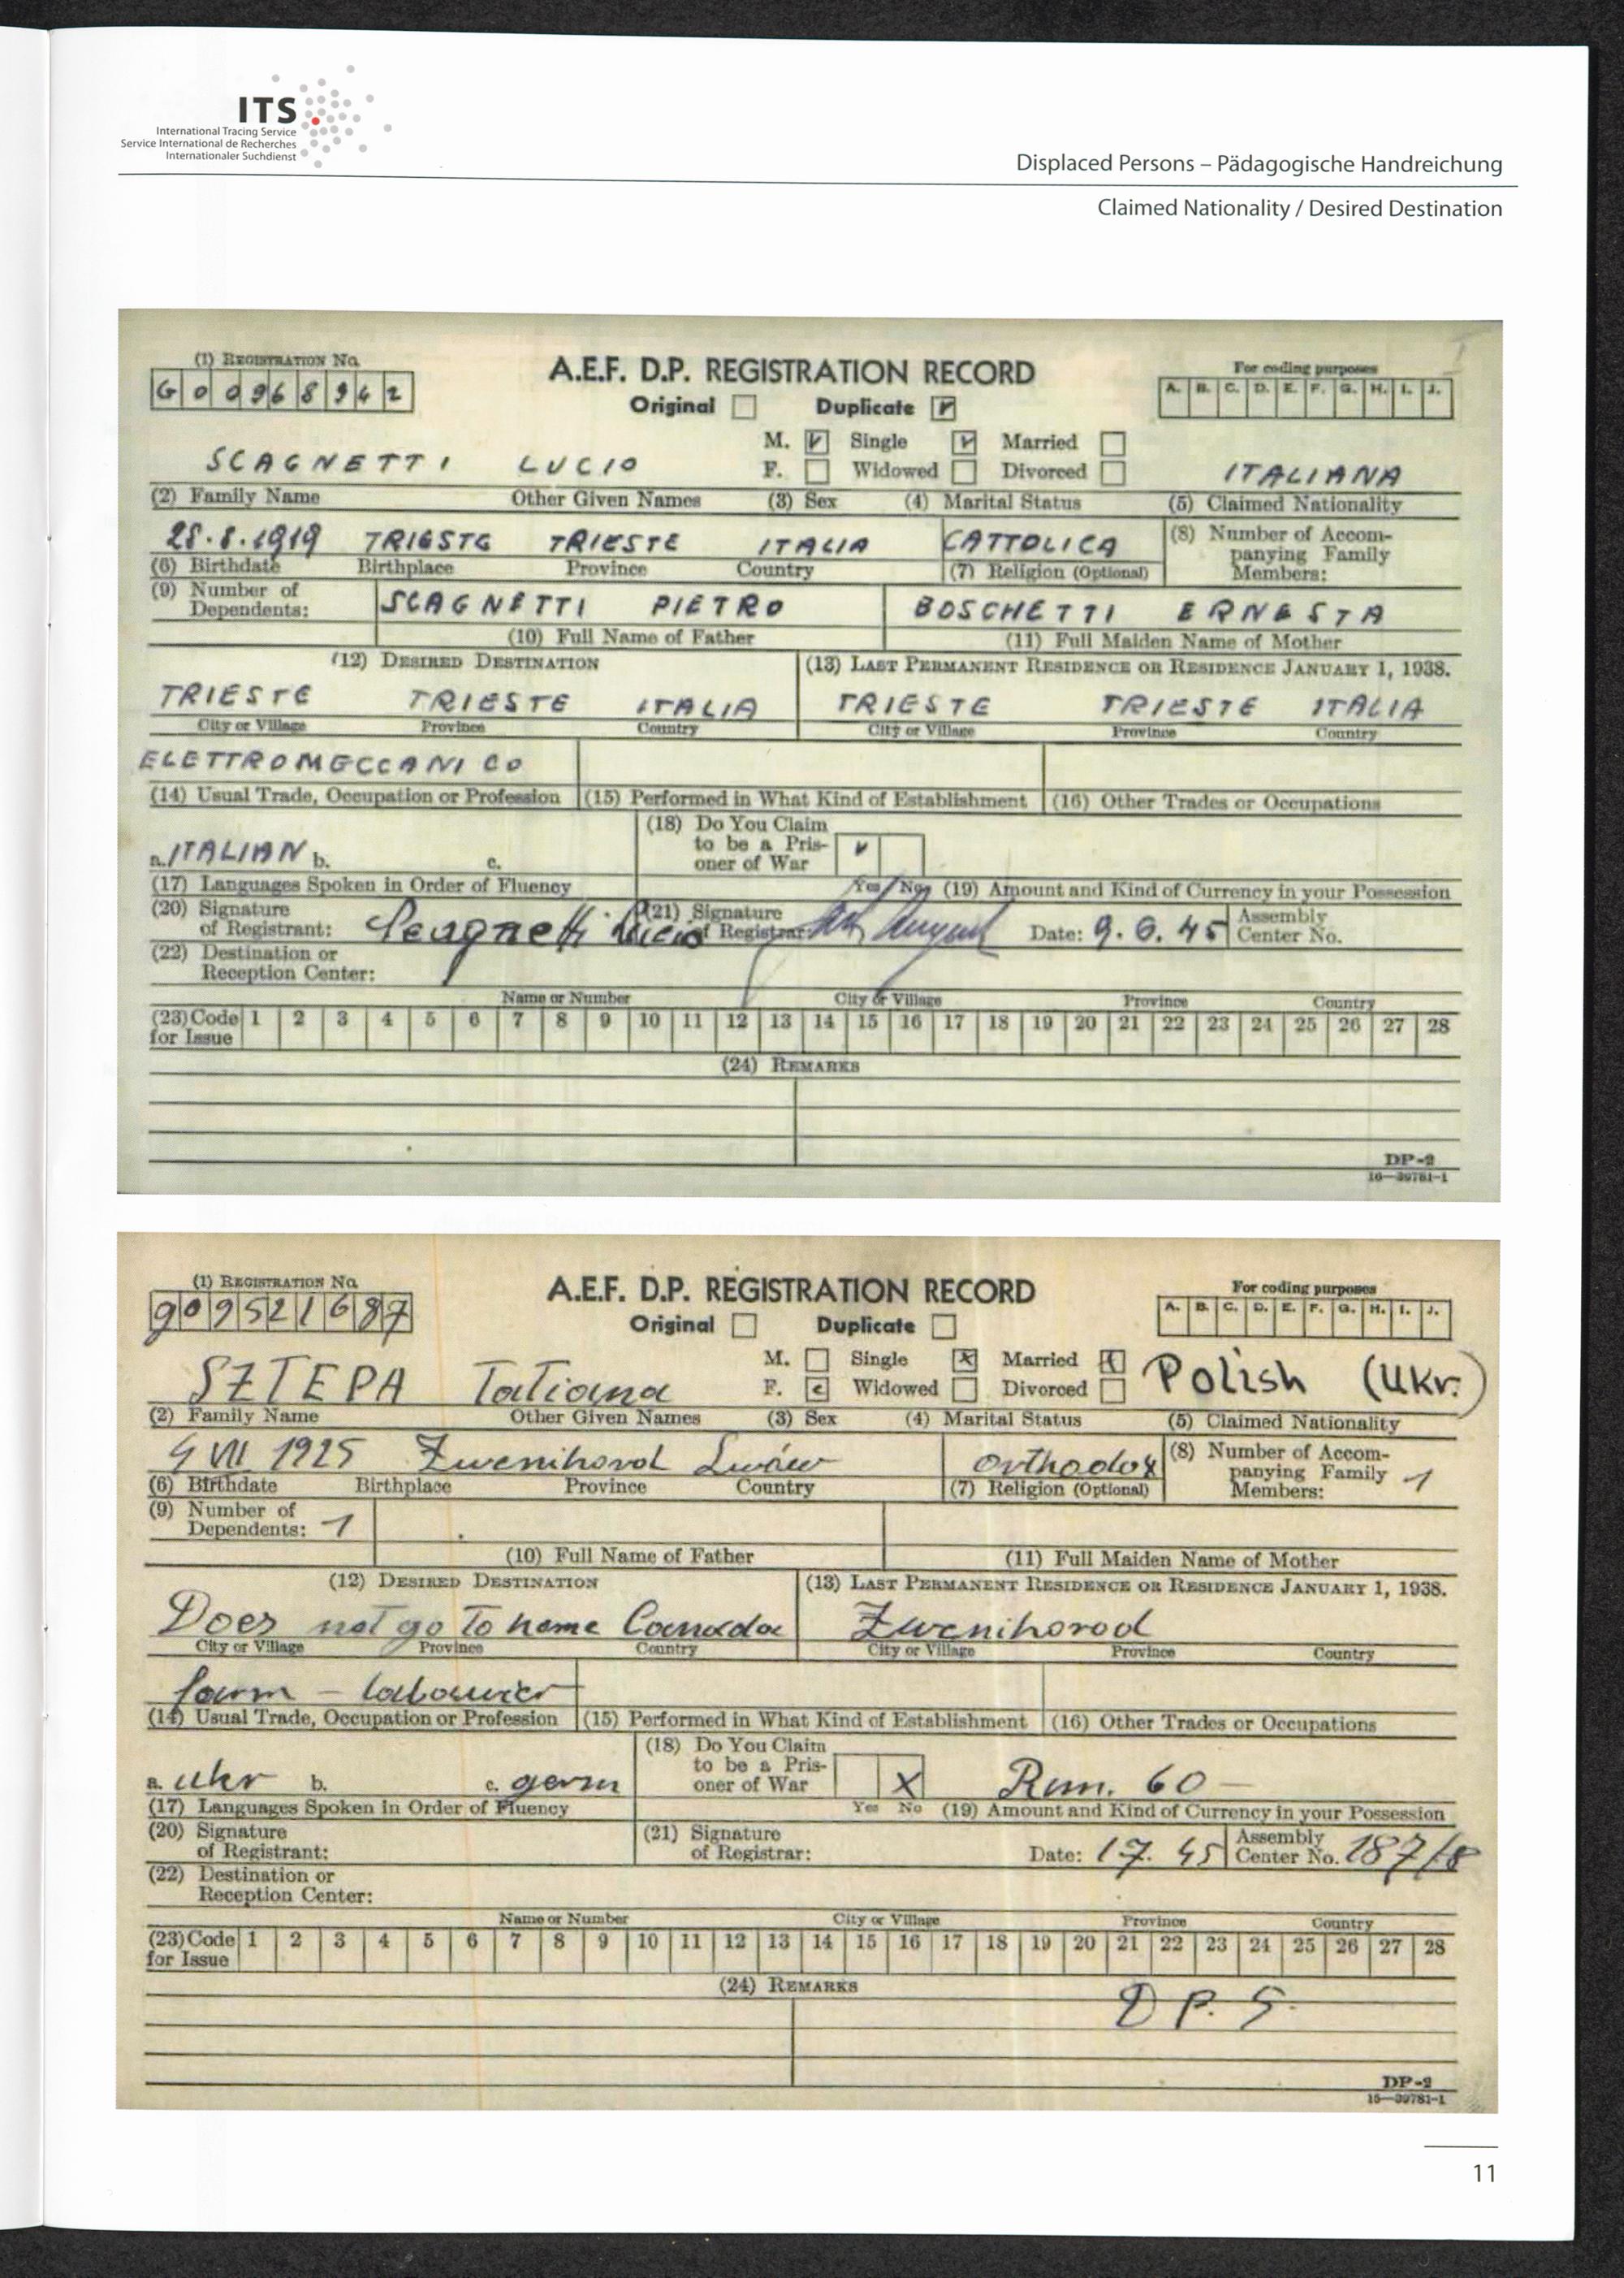 ITS
International Tracing Service
Service International de Recherches
Internationaler Suchdienst
Displaced Persons – Pädagogische Handreichung
Claimed Nationality / Desired Destination
(1) Registration No.
G 0 0 9 6 8 9 4 2
A.E.F. D.P. REGISTRATION RECORD
Original Duplicate
For coding purposes
A. B. C. D. E. F. G. H. I. J.
M. Single Married
SCAGNETTI LUCIO F. Widowed Divorced ITALIANA
(2) Family Name Other Given Names (3) Sex (4) Marital Status (5) Claimed Nationality
28.8.1919 TRIESTE TRIESTE ITALIA CATTOLICA
(6) Birthdate Birthplace Province Country (7) Religion (Optional)
(8) Number of Accom-
panying Family
Members:
(9) Number of
Dependents:
SCAGNETTI PIETRO BOSCHETTI ERNESTA
(10) Full Name of Father (11) Full Maiden Name of Mother
(12) Desired Destination (13) Last Permanent Residence or Residence January 1, 1938.
TRIESTE TRIESTE ITALIA TRIESTE TRIESTE ITALIA
City or Village Province Country City or Village Province Country
ELETTROMECCANICO
(14) Usual Trade, Occupation or Profession (15) Performed in What Kind of Establishment (16) Other Trades or Occupations
a. ITALIAN b. c.
(17) Languages Spoken in Order of Fluency
(18) Do You Claim
to be a Pris-
oner of War
Yes No (19) Amount and Kind of Currency in your Possession
(20) Signature
of Registrant: Scagnetti Lucio
(21) Signature
of Registrar:
Date: 9.6.45 Assembly
Center No.
(22) Destination or
Reception Center:
Name or Number City or Village Province Country
(23) Code 1 2 3 4 5 6 7 8 9 10 11 12 13 14 15 16 17 18 19 20 21 22 23 24 25 26 27 28
for Issue
(24) Remarks
DP-2
16—39781-1
(1) Registration No.
g 0 9 5 2 1 6 8 7
A.E.F. D.P. REGISTRATION RECORD
Original Duplicate
For coding purposes
A. B. C. D. E. F. G. H. I. J.
M. Single Married
SZTEPA Tatiana F. Widowed Divorced Polish (Ukr.)
(2) Family Name Other Given Names (3) Sex (4) Marital Status (5) Claimed Nationality
VII 1925 Zwenihorod Lwów orthodox
(6) Birthdate Birthplace Province Country (7) Religion (Optional)
(8) Number of Accom-
panying Family
Members: 1
(9) Number of
Dependents: 1
(10) Full Name of Father (11) Full Maiden Name of Mother
(12) Desired Destination (13) Last Permanent Residence or Residence January 1, 1938.
Does not go to home Canada Zwenihorod
City or Village Province Country City or Village Province Country
farm - labourer
(14) Usual Trade, Occupation or Profession (15) Performed in What Kind of Establishment (16) Other Trades or Occupations
a. ukr b. c. germ
(17) Languages Spoken in Order of Fluency
(18) Do You Claim
to be a Pris-
oner of War
Yes No
60 -
(19) Amount and Kind of Currency in your Possession
(20) Signature
of Registrant:
(21) Signature
of Registrar:
Date: 1.7. 45 Assembly
Center No. 187/8
(22) Destination or
Reception Center:
Name or Number City or Village Province Country
(23) Code 1 2 3 4 5 6 7 8 9 10 11 12 13 14 15 16 17 18 19 20 21 22 23 24 25 26 27 28
for Issue
(24) Remarks
D P. S.
DP-2
16—39781-1
11